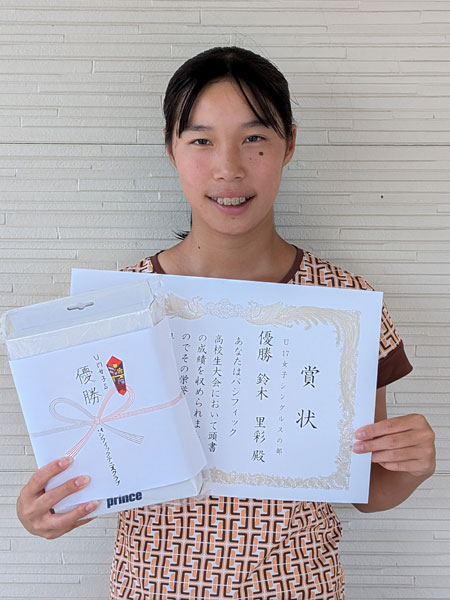 賞状
U17女子シングルスの部
優勝 鈴木 里彩 殿
あなたはパシフィック
高校生大会において頭書
の成績を収められま
のでその栄誉
U17女子S
優勝
パシフィックテニスクラブ
prince